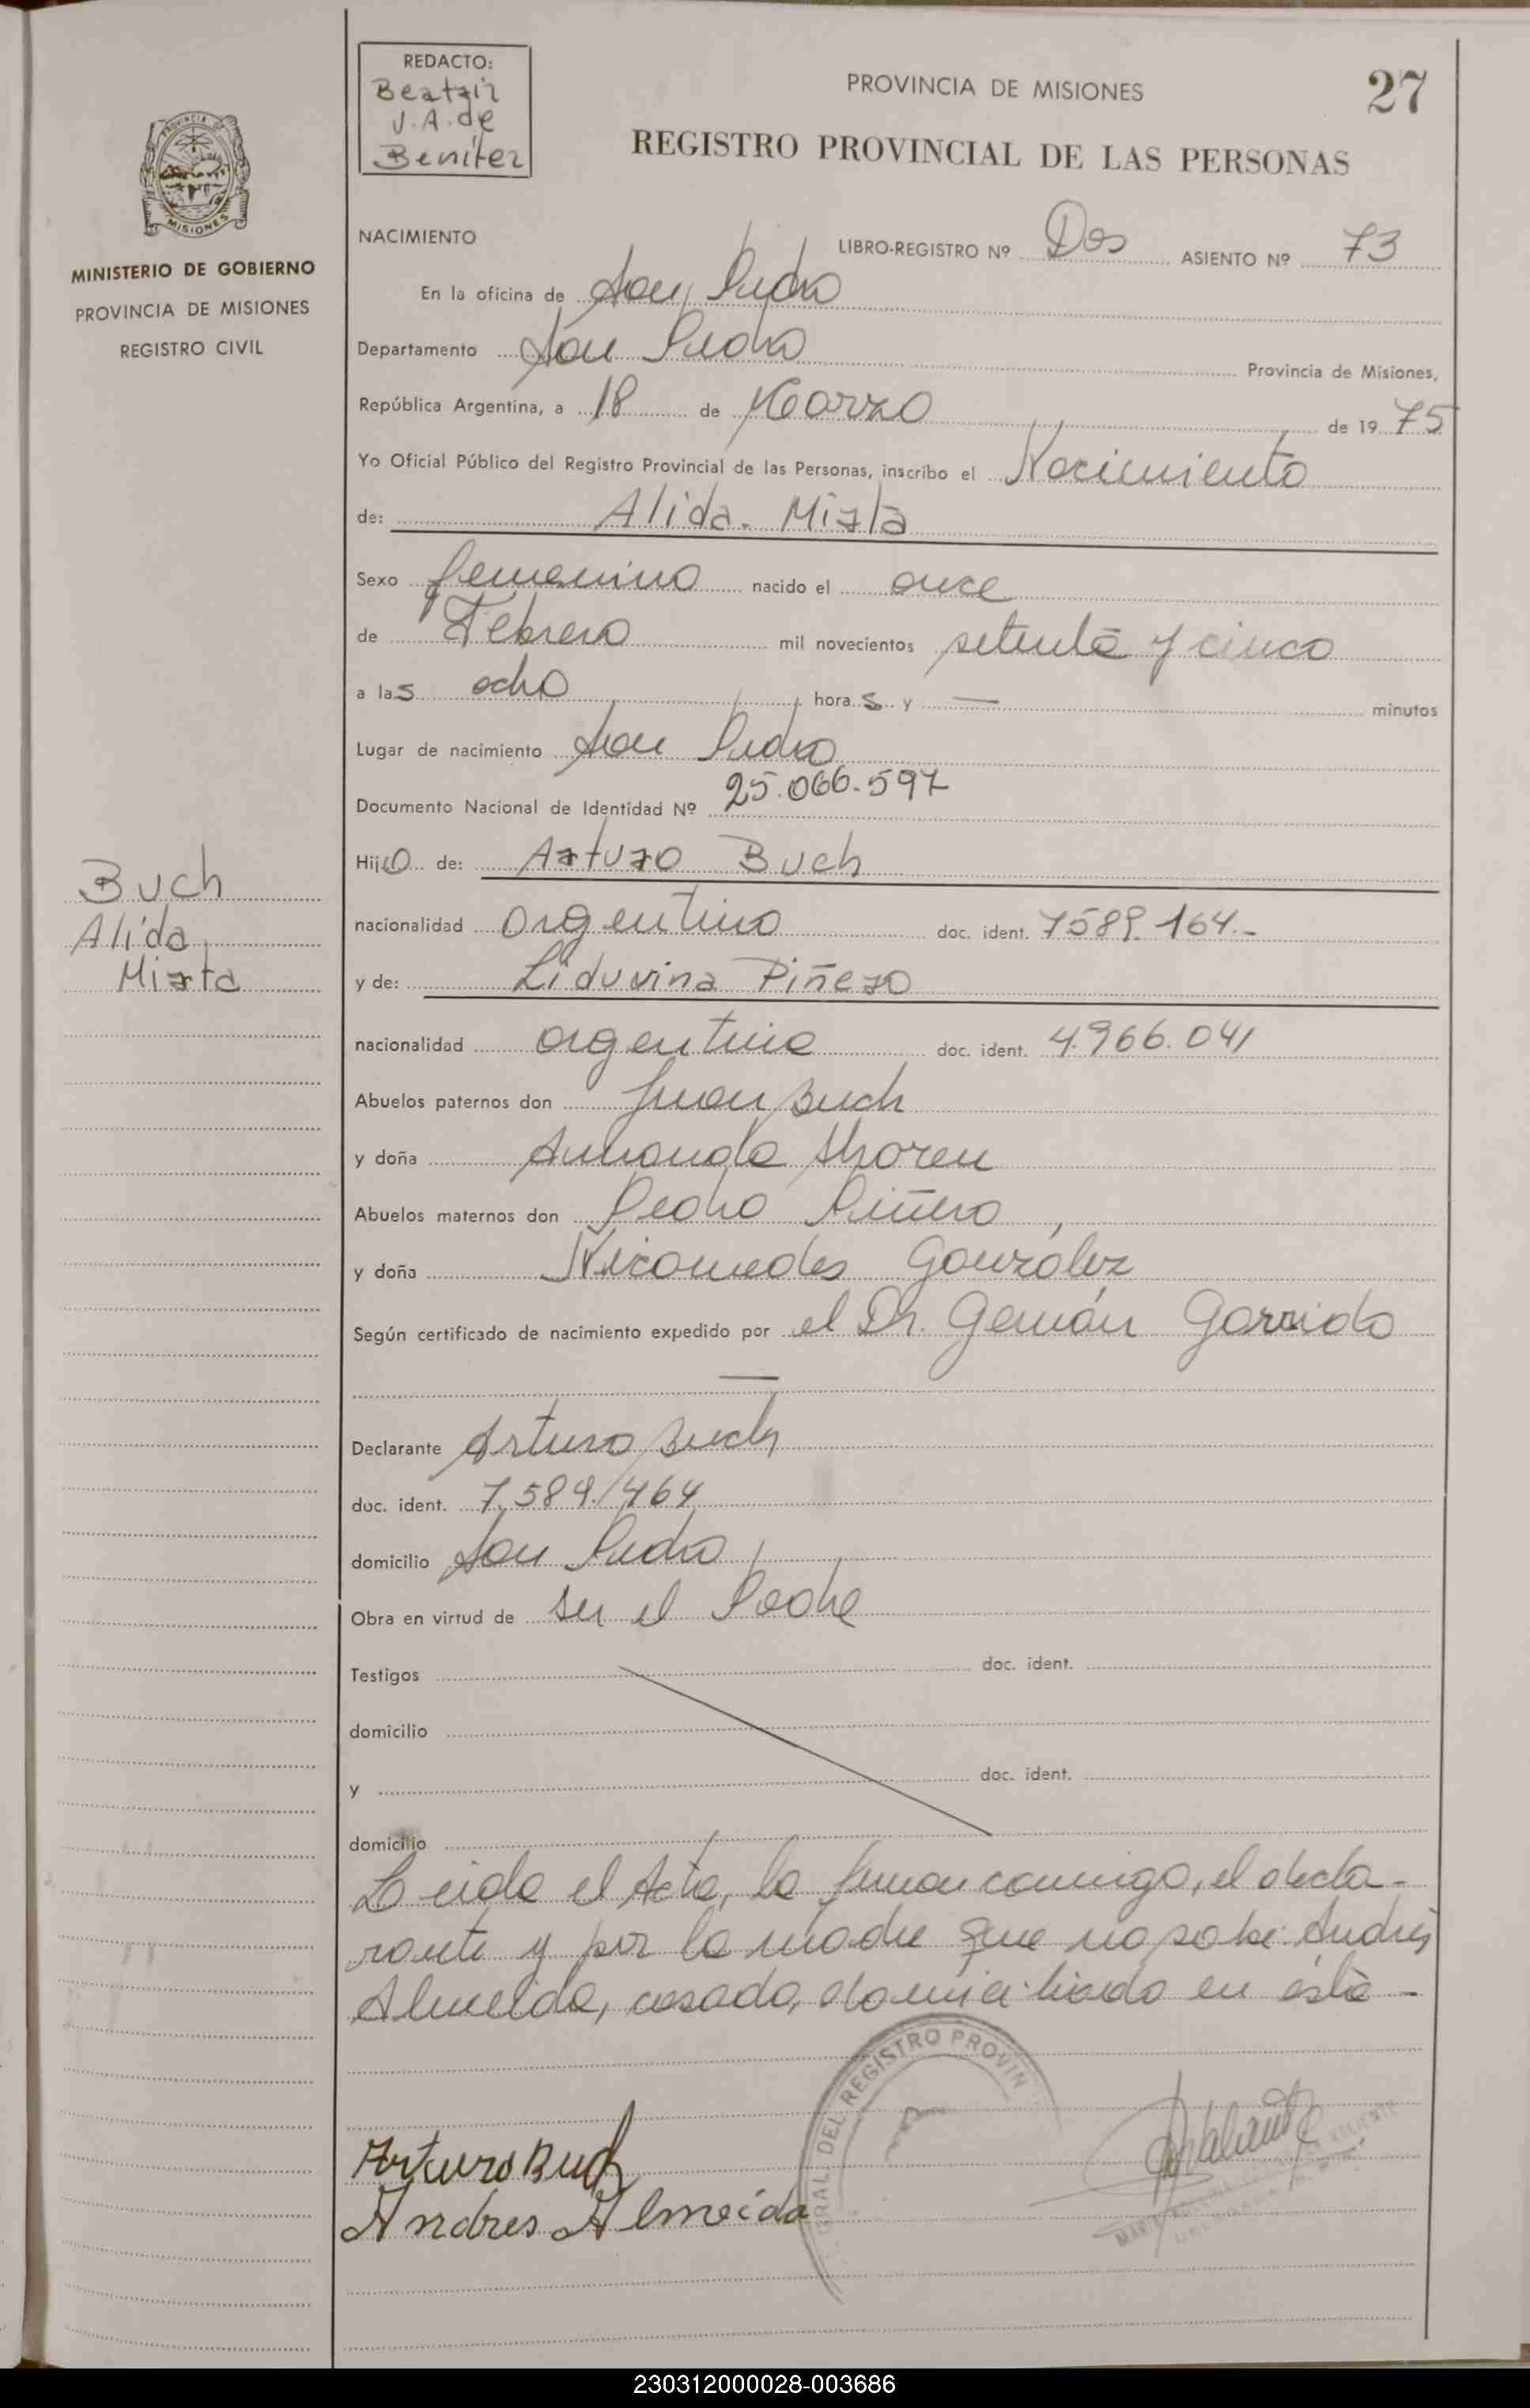 REDACTO:
Beatriz
V.A. de
Benítez
PROVINCIA DE MISIONES
27
REGISTRO PROVINCIAL DE LAS PERSONAS
PROVINCIA DE
MISIONES
MINISTERIO DE GOBIERNO
PROVINCIA DE MISIONES
REGISTRO CIVIL
NACIMIENTO LIBRO-REGISTRO Nº Dos ASIENTO Nº 73
En la oficina de San Pedro
Departamento San Pedro Provincia de Misiones,
República Argentina, a 18 de Marzo de 19 75
Yo Oficial Público del Registro Provincial de las Personas, inscribo el Nacimiento
de: Alida. Mirta
Sexo femenino nacido el once
de Febrero mil novecientos setenta y cinco
a las ocho horas y — minutos
Lugar de nacimiento San Pedro
Documento Nacional de Identidad Nº 25.066.597
Hija de: Arturo Buch
nacionalidad argentino doc. ident. 7589.164.-
y de: Liduvina Piñero
nacionalidad argentina doc. ident. 4.966.041
Buch
Alida
Mirta
Abuelos paternos don Juan Buch
y doña Amanda
Abuelos maternos don Pedro Piñero,
y doña Nicomedes González
Según certificado de nacimiento expedido por el Dr. Germán Garrido
—
Declarante Arturo Buch
doc. ident. 7.589.164
domicilio San Pedro
Obra en virtud de ser el Padre
Testigos doc. ident.
domicilio
y doc. ident.
domicilio
Leida el Acta, la firman conmigo, el decla-
rante y por la madre que no sabe: Andrés
Almeida, casado, domiciliado en ésta -
GRAL. DEL REGISTRO PROVIN
Arturo Buch
Andres Almeida
230312000028-003686